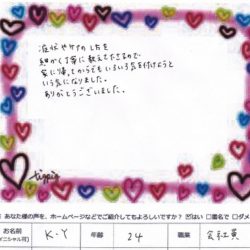 症状やケアの仕方を
細かく丁寧に教えて下さるので
家に帰ってからでもいろいろ気を付けようと
いう気になりました。
ありがとうございました。
あなた様の声を、ホームページなどでご紹介してもよろしいですか？ ☑はい □匿名で □ダメ
お名前 K-Y 年齢 24 職業 会社員
イニシャル可)